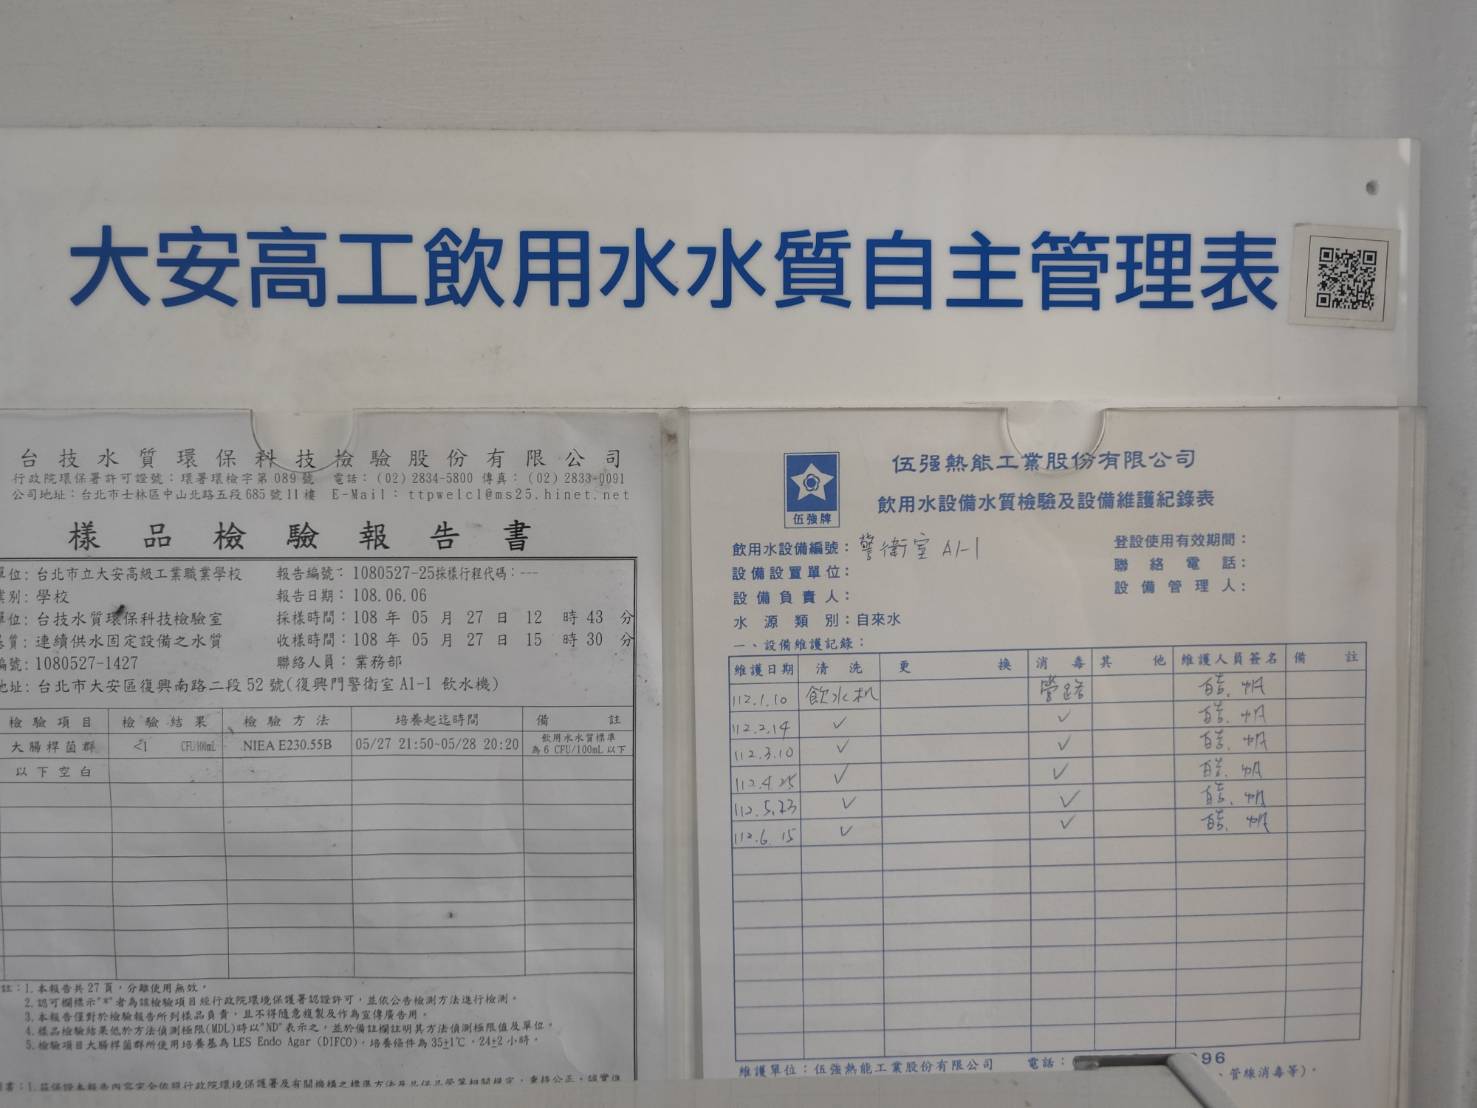 大安高工飲用水水質自主管理表
台技水質環保科技檢驗股份有限公司
行政院環保署許可證號：環署環檢字第089號 電話：(02)2834-5800 傳真：(02)2833-0091
公司地址：台北市士林區中山北路五段685號11樓 E-Mail：ttpwelcl@ms25.hinet.net
樣品檢驗報告書
單位：台北市立大安高級工業職業學校 報告編號：1080527-25採樣行程代碼：---
業別：學校 報告日期：108.06.06
單位：台技水質環保科技檢驗室 採樣時間：108 年 05 月 27 日 12 時 43 分
基質：連續供水固定設備之水質 收樣時間：108 年 05 月 27 日 15 時 30 分
編號：1080527-1427 聯絡人員：業務部
地址：台北市大安區復興南路二段52號(復興門警衛室A1-1 飲水機)
檢驗項目 檢驗結果 檢驗方法 培養起迄時間 備註
大腸桿菌群 <1 CFU/100mL NIEA E230.55B 05/27 21:50~05/28 20:20 飲用水水質標準
為6 CFU/100mL以下
以下空白
註：1.本報告共27頁，分離使用無效。
2.認可欄標示"*"者為該檢驗項目經行政院環境保護署認證許可，並依公告檢測方法進行檢測。
3.本報告僅對於檢驗報告所列樣品負責，且不得隨意複製及作為宣傳廣告用。
4.樣品檢驗結果低於方法偵測極限(MDL)時以"ND"表示之，並於備註欄註明其方法偵測極限值及單位。
5.檢驗項目大腸桿菌群所使用培養基為LES Endo Agar (DIFCO)，培養條件為35±1℃，24±2小時。
伍強牌
伍强熱能工業股份有限公司
飲用水設備水質檢驗及設備維護紀錄表
飲用水設備編號：警衛室 A1-1 登設使用有效期間：
設備設置單位： 聯絡電話：
設備負責人： 設備管理人：
水源類別：自來水
一、設備維護記錄：
維護日期 清洗 更換 消毒 其他 維護人員簽名 備註
112.1.10 飲水机 管路
112.2.14 ✓ ✓
112.3.10 ✓ ✓
112.4.25 ✓ ✓
112.5.23 ✓ ✓
112.6.15 ✓ ✓
維護單位：伍強熱能工業股份有限公司 電話： 96
、管線消毒等)。